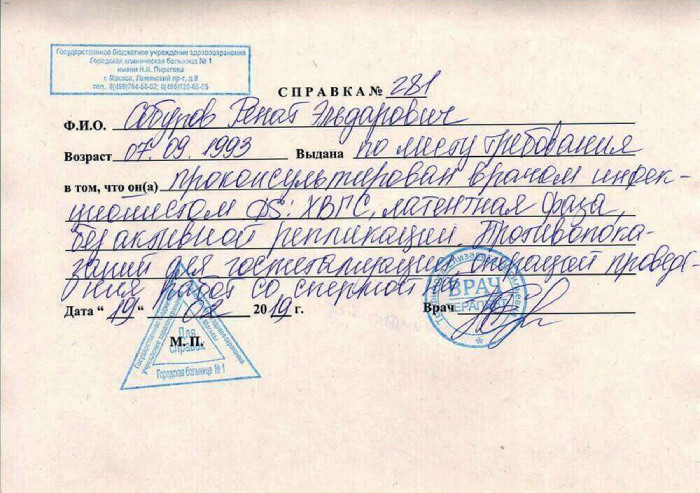 Государственное бюджетное учреждение здравоохранения
Городская клиническая больница № 1
имени Н.И. Пирогова
г. Москва, Ленинский пр-т, д.8
СПРАВКА № 281
Ф.И.О. Собуров Ренат Эльдарович
Возраст 07.09.1993 Выдана по месту требования
в том, что он(а) проконсультирован врачом инфек-
ционистом DS: ХВГС, латентная фаза,
без активной репликации. Противопока-
заний для госпитализации, операций, проведе-
ния работ со спермой
Дата "19" 02 2019 г. Врач
ВРАЧ
ТЕРАПЕВТ
М. П.
Для
справок
Городская больница № 1